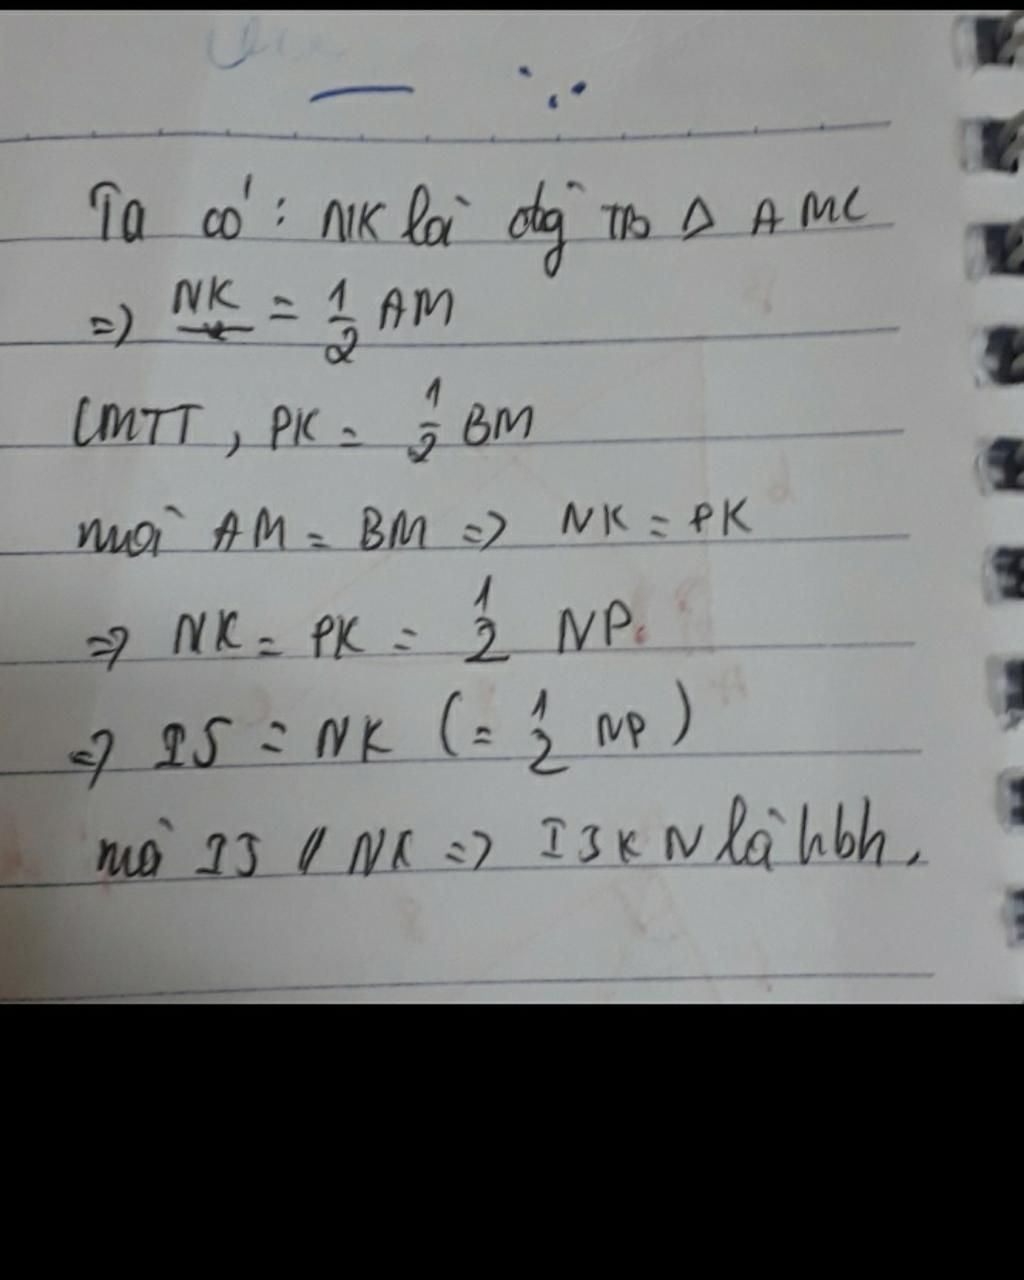 Ta có: NK là đtg TB Δ AMC
=> NK = 1/2 AM
CMTT, PK = 1/2 BM
mà AM = BM => NK = PK
=> NK = PK = 1/2 NP.
=> IJ = NK (= 1/2 NP)
mà IJ // NK => IJKN là hbh.